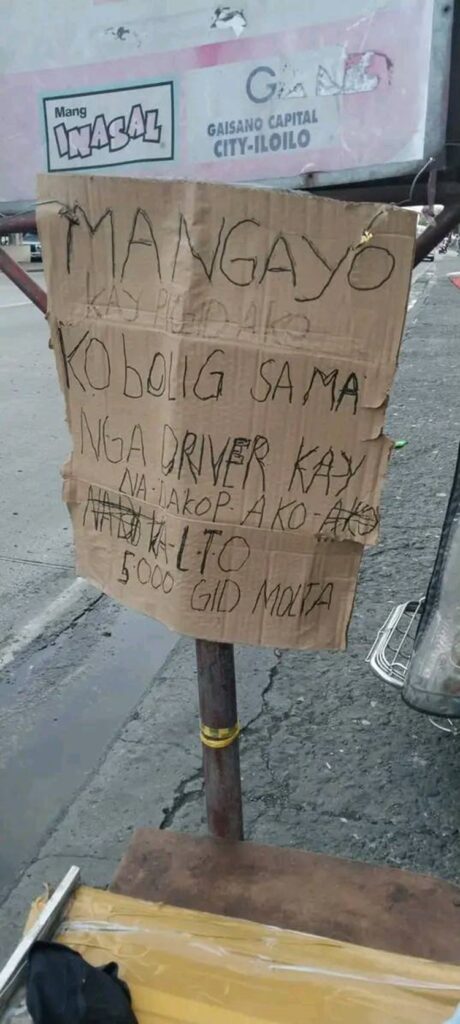 Mang
INASAL
GAISANO CAPITAL
CITY-ILOILO
MANGAYO
KO bOLIG SA MA
NGA DRIVER KAY
NA-DAKOP AKO AKO
KA-LTO
5.000 GID MOLTA